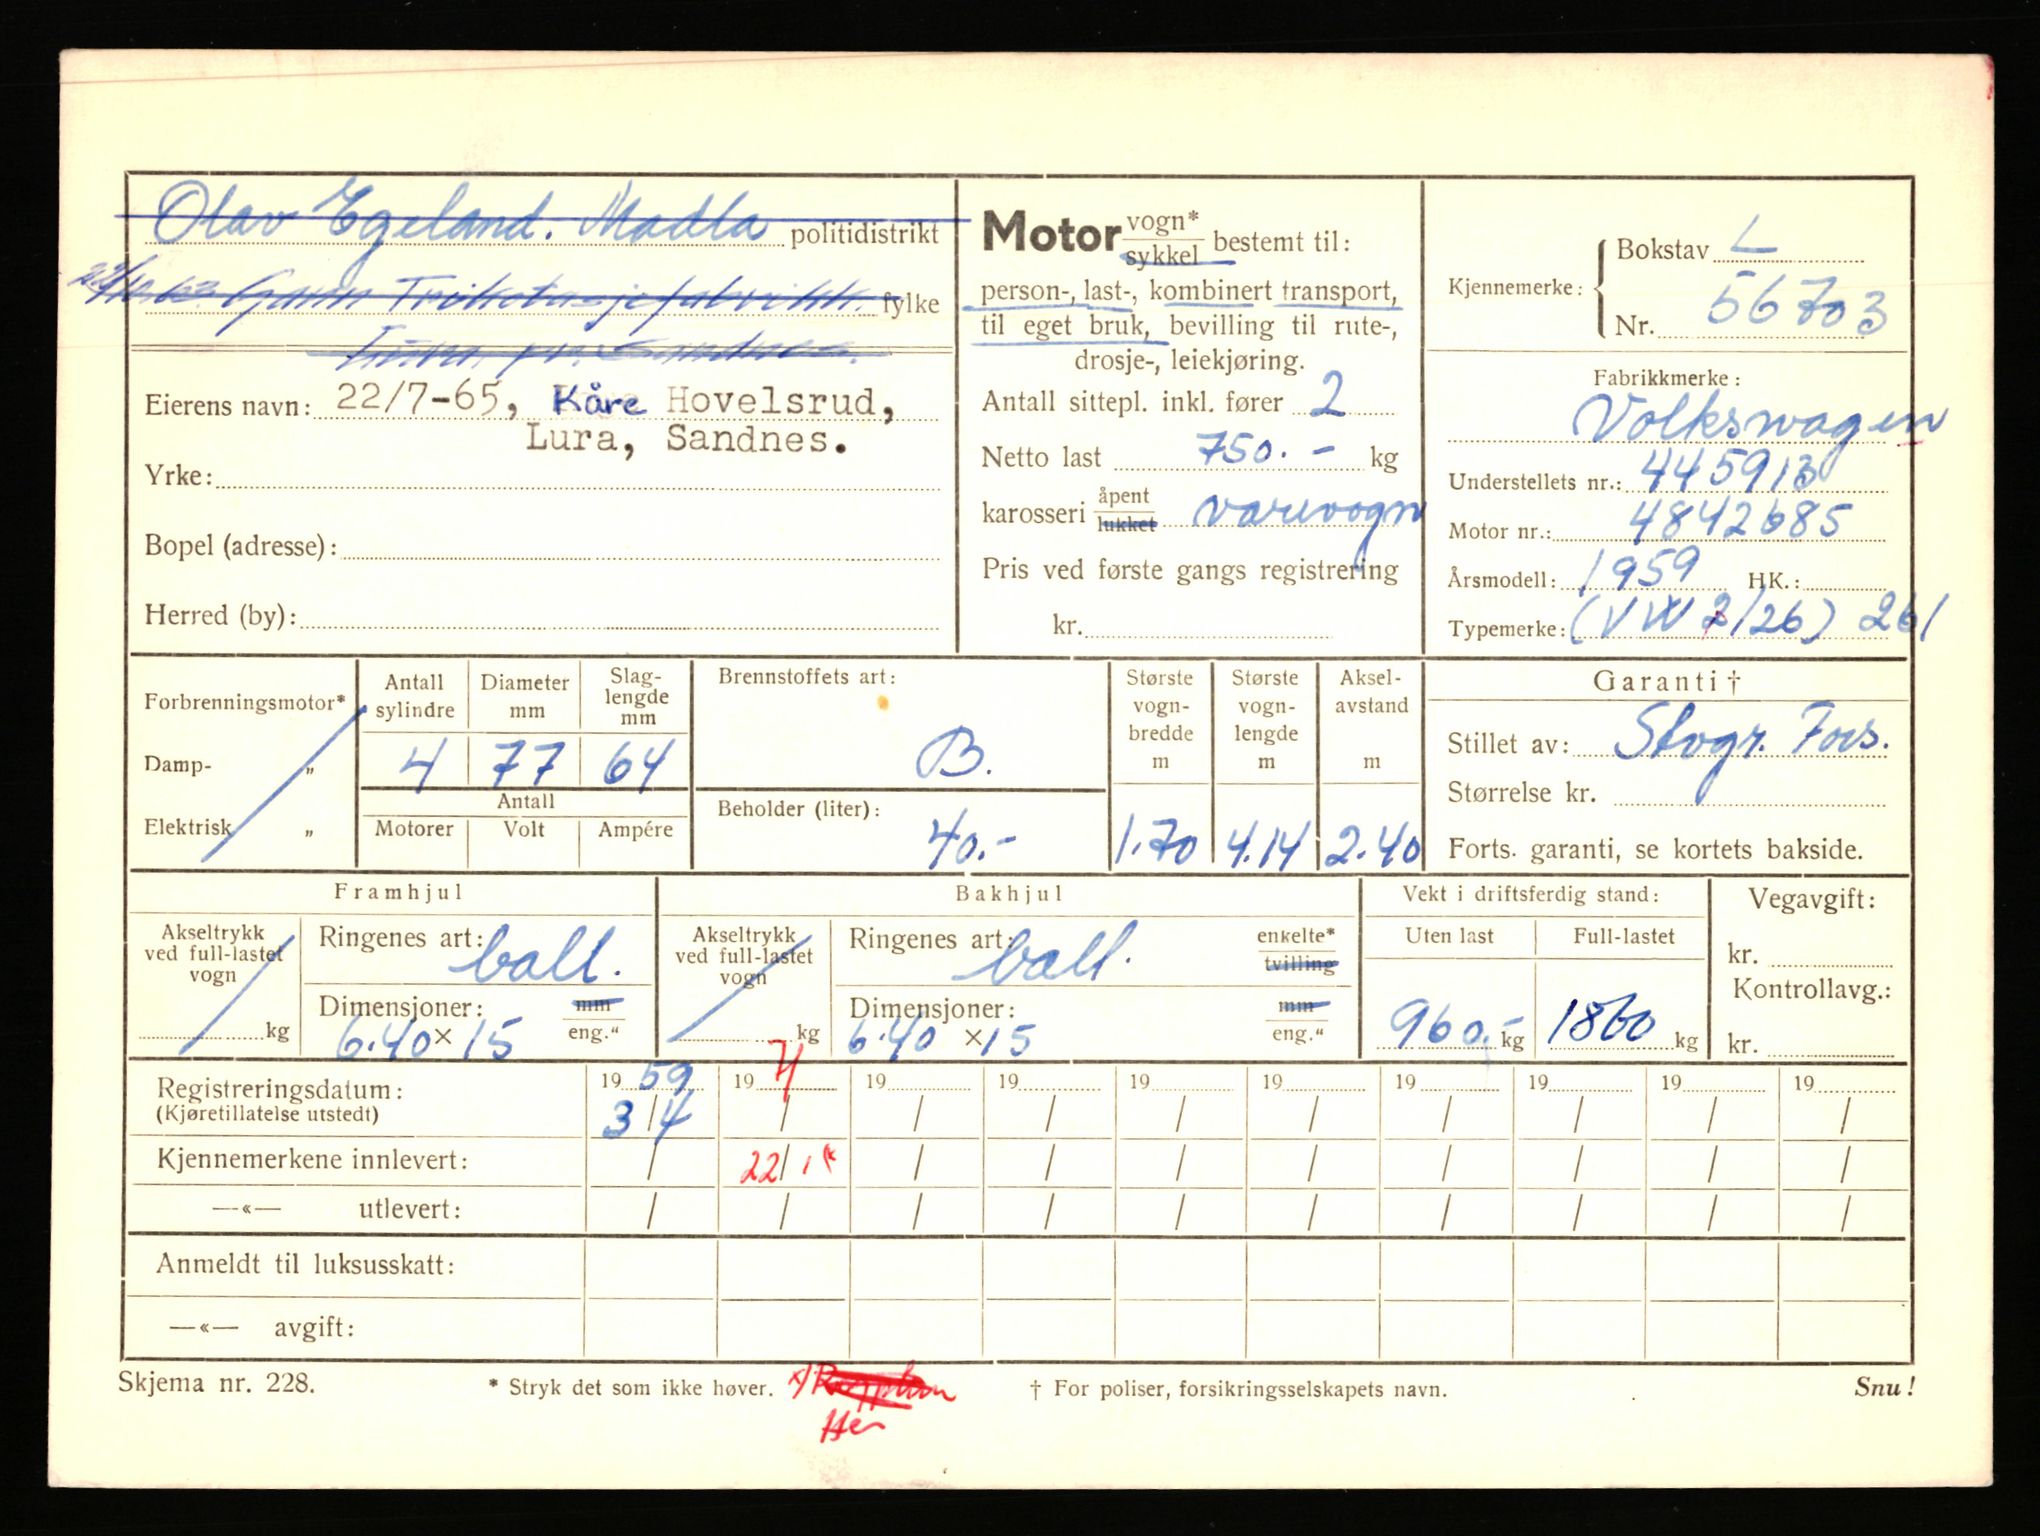 Olav Egeland. Madla politidistrikt
Gann Trikotasjefabrikk. fylke
Lura pr. Sandnes.
Eierens navn: 22/7-65, Kåre Hovelsrud,
Lura, Sandnes.
Yrke:
Bopel (adresse):
Herred (by):
Motor vogn* sykkel bestemt til:
person-, last-, kombinert transport,
til eget bruk, bevilling til rute-,
drosje-, leiekjøring.
Antall sittepl. inkl. fører 2
Netto last 750.- kg
karosseri åpent lukket varevogn
Pris ved første gangs registrering
kr.
Kjennemerke: Bokstav L
Nr. 56703
Fabrikkmerke:
Volkswagen
Understellets nr.: 445913
Motor nr.: 4842685
Årsmodell: 1959 HK.:
Typemerke: (VW 2/26) 261
Forbrenningsmotor*
Damp- „
Elektrisk „
Antall sylindre Diameter mm Slag-lengde mm
4 77 64
Antall
Motorer Volt Ampére
Brennstoffets art:
B.
Beholder (liter):
40.-
Største vogn-bredde m
1.70
Største vogn-lengde m
4.14
Aksel-avstand m
2.40
Garanti †
Stillet av: Stvgr. Fors.
Størrelse kr.
Forts. garanti, se kortets bakside.
Framhjul
Akseltrykk ved full-lastet vogn
kg
Ringenes art: ball.
Dimensjoner: mm
6.40 × 15 eng.“
Bakhjul
Akseltrykk ved full-lastet vogn
kg
Ringenes art: ball. enkelte* tvilling
Dimensjoner: mm
6.40 ×15 eng.“
Vekt i driftsferdig stand:
Uten last Full-lastet
960.- kg 1860 kg
Vegavgift:
kr.
Kontrollavg.:
kr.
Registreringsdatum: 19 59 19 71 19 19 19 19 19 19 19 19
(Kjøretillatelse utstedt) 3/4 / / / / / / / / /
Kjennemerkene innlevert: / 22/1 * / / / / / / / /
—«— utlevert: / / / / / / / / / /
Anmeldt til luksusskatt:
—«— avgift:
Skjema nr. 228. * Stryk det som ikke høver. † For poliser, forsikringsselskapets navn. Snu!
Her